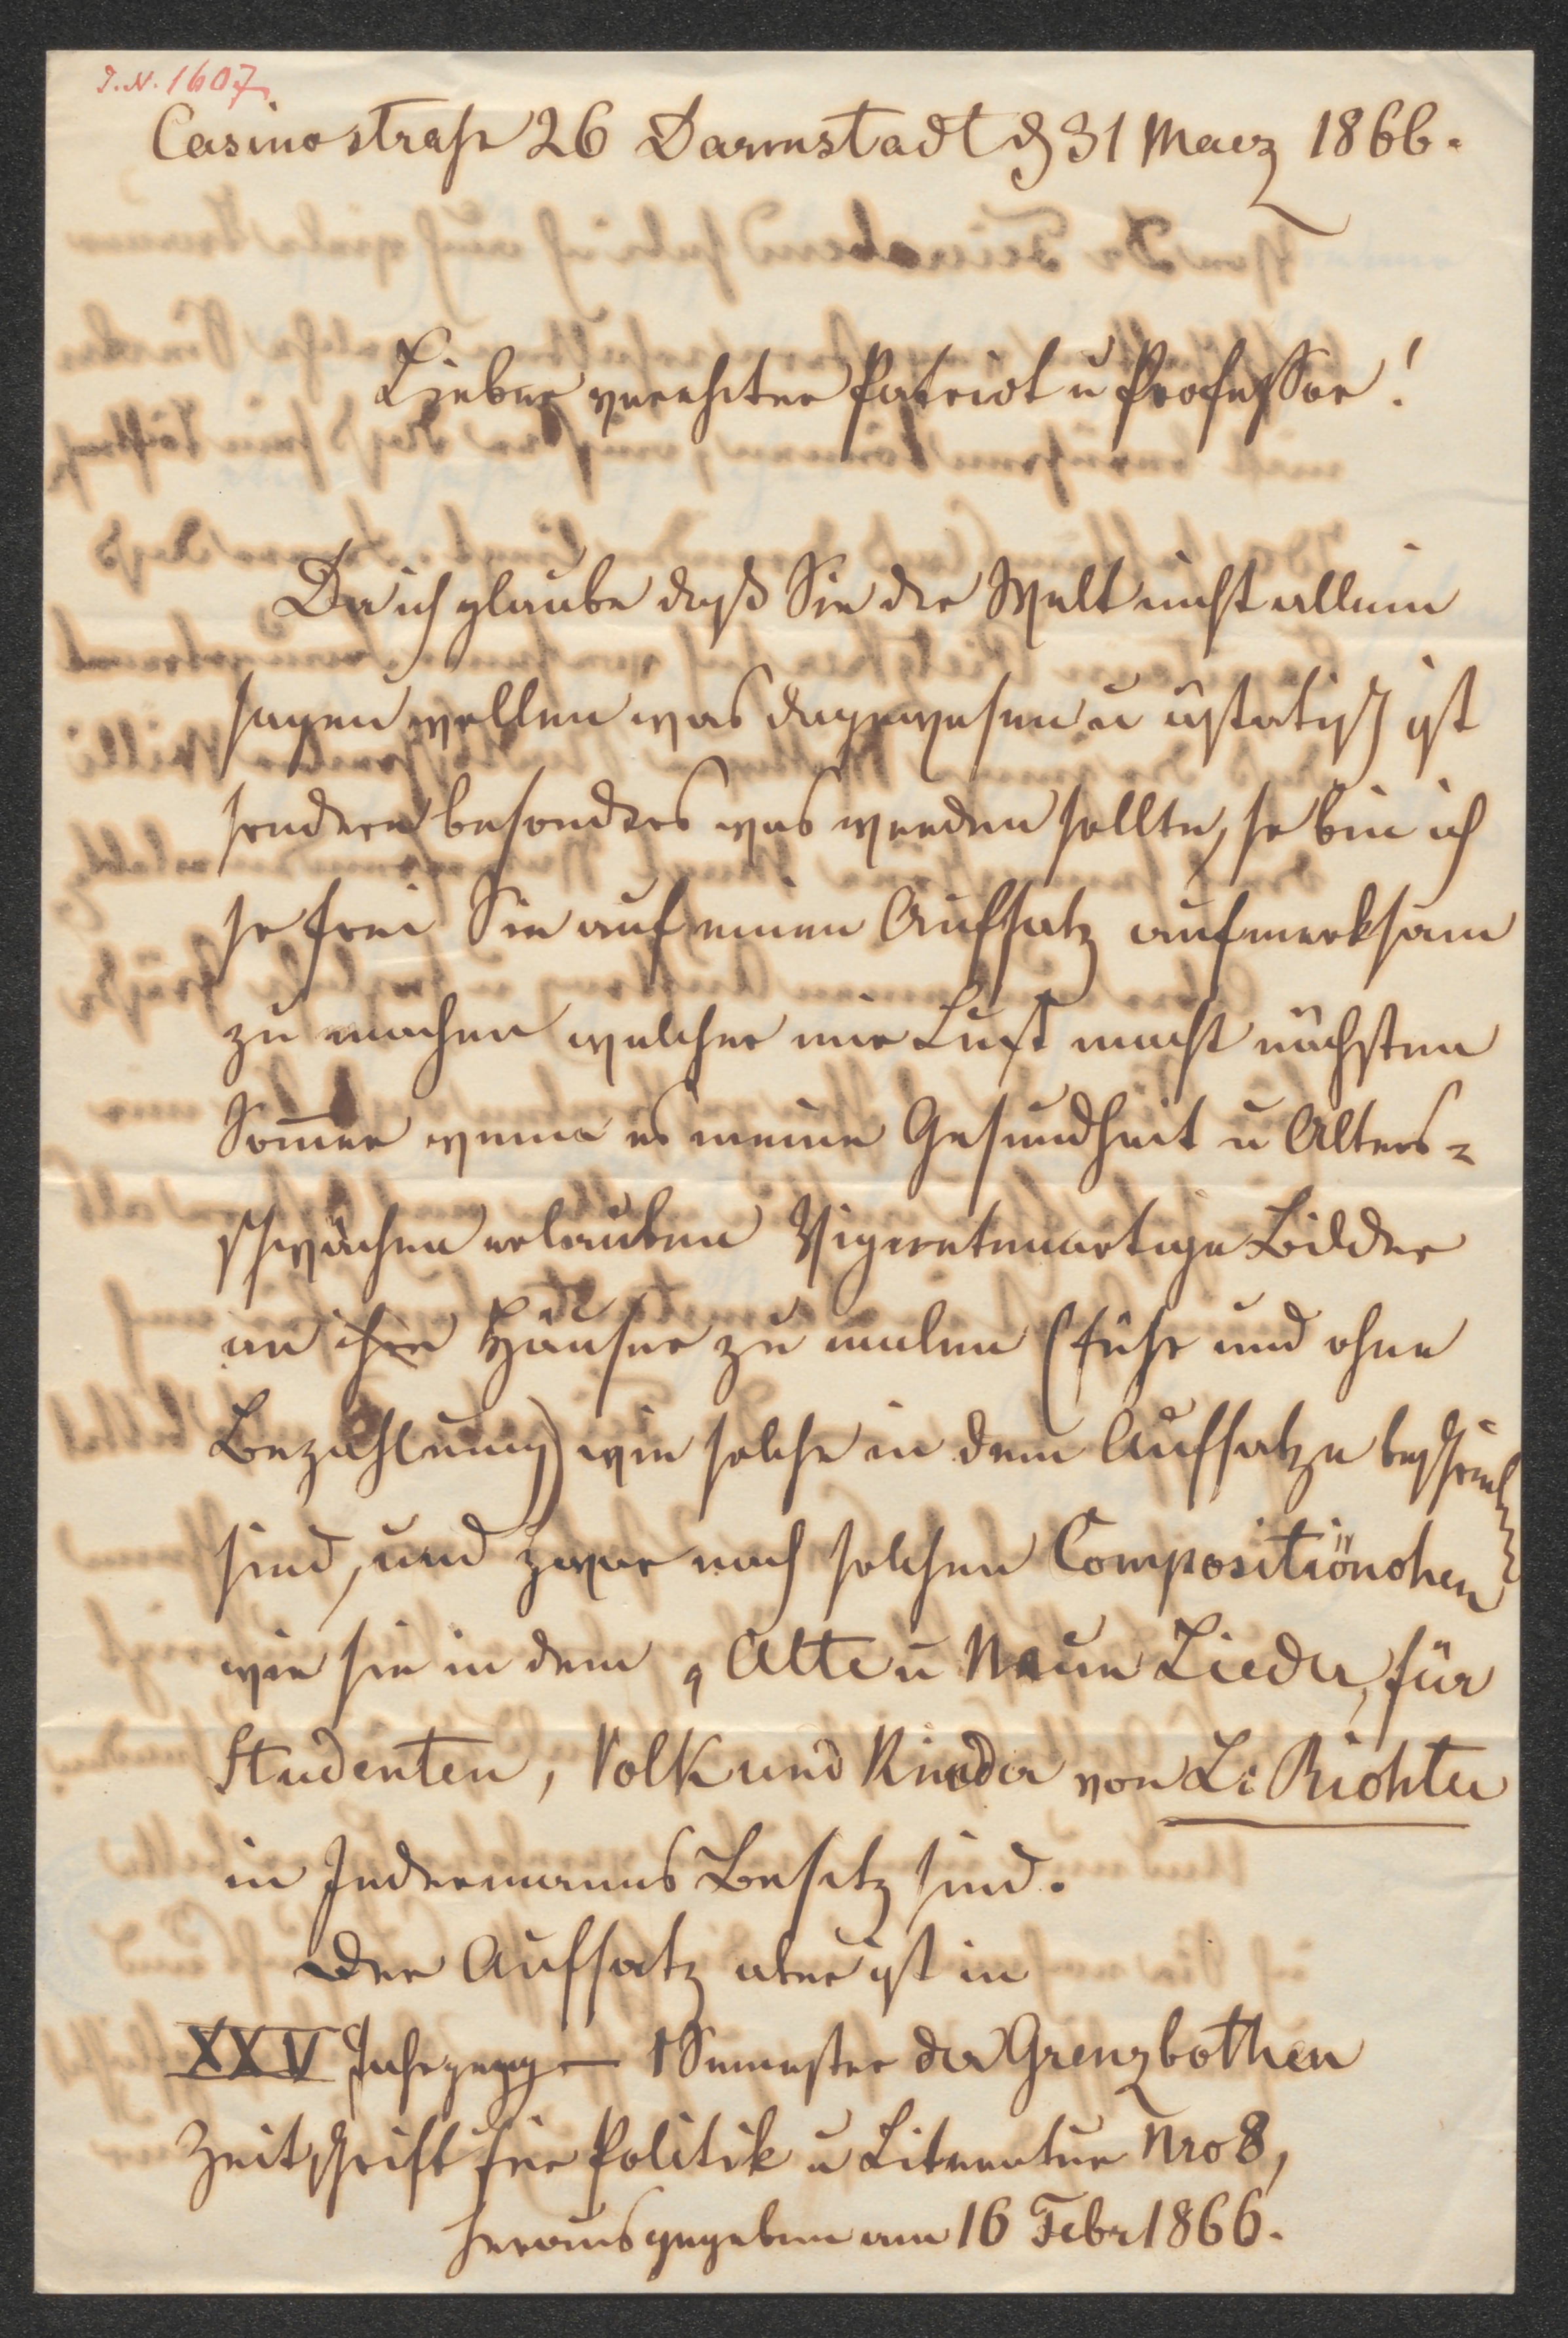 I.N. 1607
Casinostraße 26 Darmstadt d 31 Maerz 1866.
Lieber verehrter Patriot u Professor!
Da ich glaube daß Sie der Welt nicht allein
sagen wollen was dagewesen u ist
sondern besonders was werden sollte, so bin ich
so frei Sie auf einen Aufsatz aufmerksam
zu machen welcher mir Lust macht nächsten
Som̅er wenn es meine Gesundheit u Alters=
schwächen erlauben Vignettenartige Bilder
an Häuser zu malen (und ohne
Bezahlung) wie solche in dem Aufsatze
sind, und zwar nach solchen Compositiönchen
wie sie in dem „Alte u Neue Lieder, für
Studenten, Volk und Kinder von L: Richter
in Jedermanns Besitz sind.
Der Aufsatz aber ist in
XXV Jahrgang – 1 Semester der Grenzbothen
Zeitschrift für Politik u Literatur Nro 8,
herausgegeben am 16 Febr 1866.